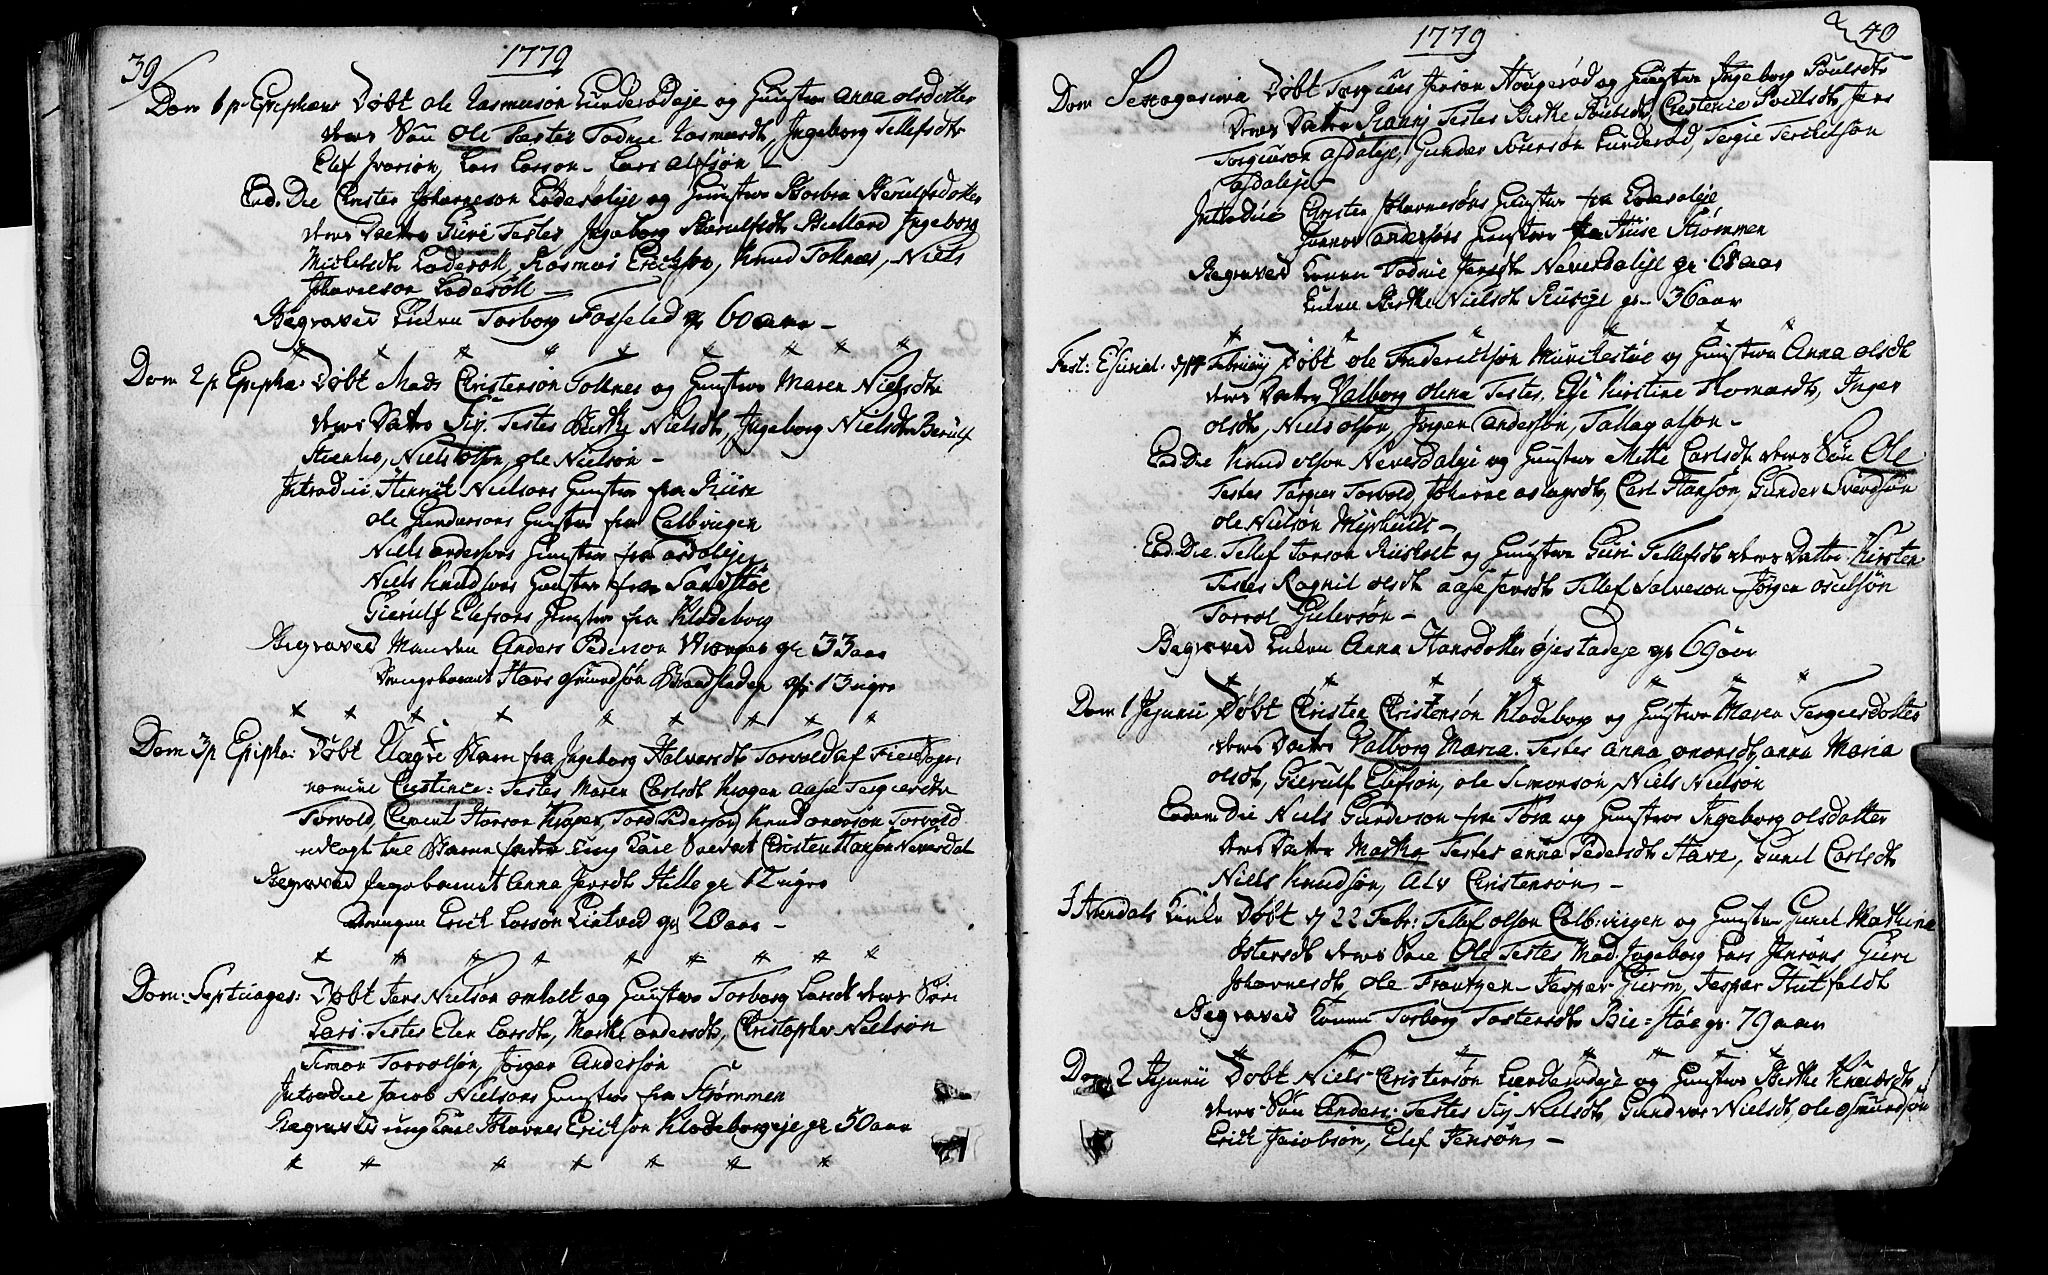 39
1779
Dom 1 p Epiphan Døbt Ole Rasmusøn Lunderødeje og Hustru Anna Olsdatter
deres Søn Ole Testes Todnie Rasmusdt, Ingeborg Tellefsdtr
Elef Iversøn, Lars Larsøn - Lars Alfsøn -
Eod: Die Christen Johannesøn Lødesøleje og Hustru Barbra Gierulfsdatter
deres Datter Guri Testes Ingeborg Gierulfsdt Hulland Ingeborg
Michelsdtr Lødesøll, Rasmus Erichsøn, Knud Tolknæs, Niels
Johannesøn Lødesøll -
Begraved Enken Torborg Fosselid gl 60 aar -
Dom 2 p Epipha: Døbt Mads Christensøn Tolknes og Hustru Maren Nielsdtr
deres Datter Siv. Testes Birthe Nielsdtr, Ingeborg Nielsdtr Berulf
Steenhs, Niels Olsøn, Ole Nielsøn -
Introduc: Henrich Nielsøns Hustru fra Riise
Ole Gundersøns Hustru fra Calbviigen
Niels Andersøns Hustru fra Asdaleje
Niels Knudsøns Hustru fra Sandstøe
Gierulf Elefsøns Hustru fra Klodeborg
Begraved Manden Anders Pedersøn Vrængen gl 33 aar
Drengebarnet Hans Osmundsøn Baadsleden gl 13 ugr
Dom 3 p Epipha: Døbt Uægte Barn fra Ingeborg Halversdt Torvold af Fierre Sogn
nomine Cristence: Testes Maren Carlsdt Krogen Aase Tergiersdtr
Torvold, Clement Hansøn Krogen, Tord Pedersøn, Knud Ononsøn Torvold
udlagt til Barnefader Ung Karl Soldat Christen Hansøn Neversdal
Begraved Pigebarnet Anna Jensdt Helle gl 12 ugr
Drengen Erich Larsøn Lietved gl 20 aar -
Dom: Septuages: Døbt Jens Nielsøn Omholt og Hustru Torborg Larsdt deres Søn
Lars. Testes Elen Larsdt, Marthe Andersdt, Christopher Nielsøn
Simon Torvolsøn, Jørgen Andersøn
Introduc Jacob Nielsøns Hustru fra Strømmen
Begraved ung Karl Johannes Erichsøn Klodeborgeje gl 50 aar
1779
40
Dom Sexagesima Døbt Torgiuus Jensøn Hougerød og Hustru Ingeborg Poulsdtr
deres Datter Ranni Testes Birthe Poulsdt, Christence Poulsdt, Jens
Torgiusøn Asdaleje, Gunder Sørensøn Lunderød, Tergie Terkelsøn
Asdaleje -
Introduc Christen Johannesøns Hustru fra Lødesøleje
Gunner Andersøns Hustru fra Huse Strømmen
Begraved Konen Todnie Jensdtr Neversdaleje gl. 68 aar
Enken Birthe Nielsdt Riuseje gl - 36 aar
Fest: Esurial. d 17 Februarij Døbt Ole Friderichsøn Munchestøe og Hustru Anna Olsdt
deres Datter Valborg Olena Testes. Else Kirstine Thomasdt, Inger
Olsdt, Niels Olsøn, Jørgen Andersøn, Tallag Olsøn -
Eod: Die Knud Olsøn Neversdaleje og Hustru Mette Carlsdt deres Søn Ole
Testes Targier Torvold Johanne Aslagsdt, Carl Hansøn, Gunder Svendsøn
Ole Nielsøn Myrhuus -
Eod: Die Tellef Torsøn Riisholt og Hustru Guri Tellefsdt deres Datter Kirsten
Testes Ragnil Olsdt Aase Jensdt Tellef Salvesøn Jørgen Osulsøn
Torvol Gulevsøn -
Begraved Enken Anna Hansdatter Øjestadeje gl 69 aar
Dom 1 Jejunii Døbt Christen Christensøn Klodeborg og Hustru Maren Tergiersdatter
deres Datter Valborg Maria. Testes Anna Ononsdt Anna Maria
Olsdt, Gierulf Elefsøn, Ole Simonsøn, Niels Nielsøn
Eodem Die Niels Gundersøn fra Tøra og Hustrue Ingeborg Olsdatter
deres Datter Marthe, Testes Anna Pedersdt Have, Gunel Carlsdt
Niels Knudsøn, Alv Christensøn -
I Arendals Kirke Døbt d 22 Febr: Tellef Olsøn Calbviigen og Hustru Gunel Mathina
Ostersdt deres Søn Ole Testes Mad. Ingeborg Lars Jensøns Guri
Johannesdt, Ole Frantzen - Jesper Gierm, Jesper Hutfeldt
Begraved Konen Torborg Tostensdt Bie=støe gl. 79 aar
Dom 2 Jejunii Døbt Niels Christensøn Lunderødeje og Hustru Birthe Knudsdtr
deres Søn Anders: Testes Siv Nielsdt, Gundvor Nielsdt, Ole Osmundsøn
Erich Jacobsøn, Elef Jensøn -